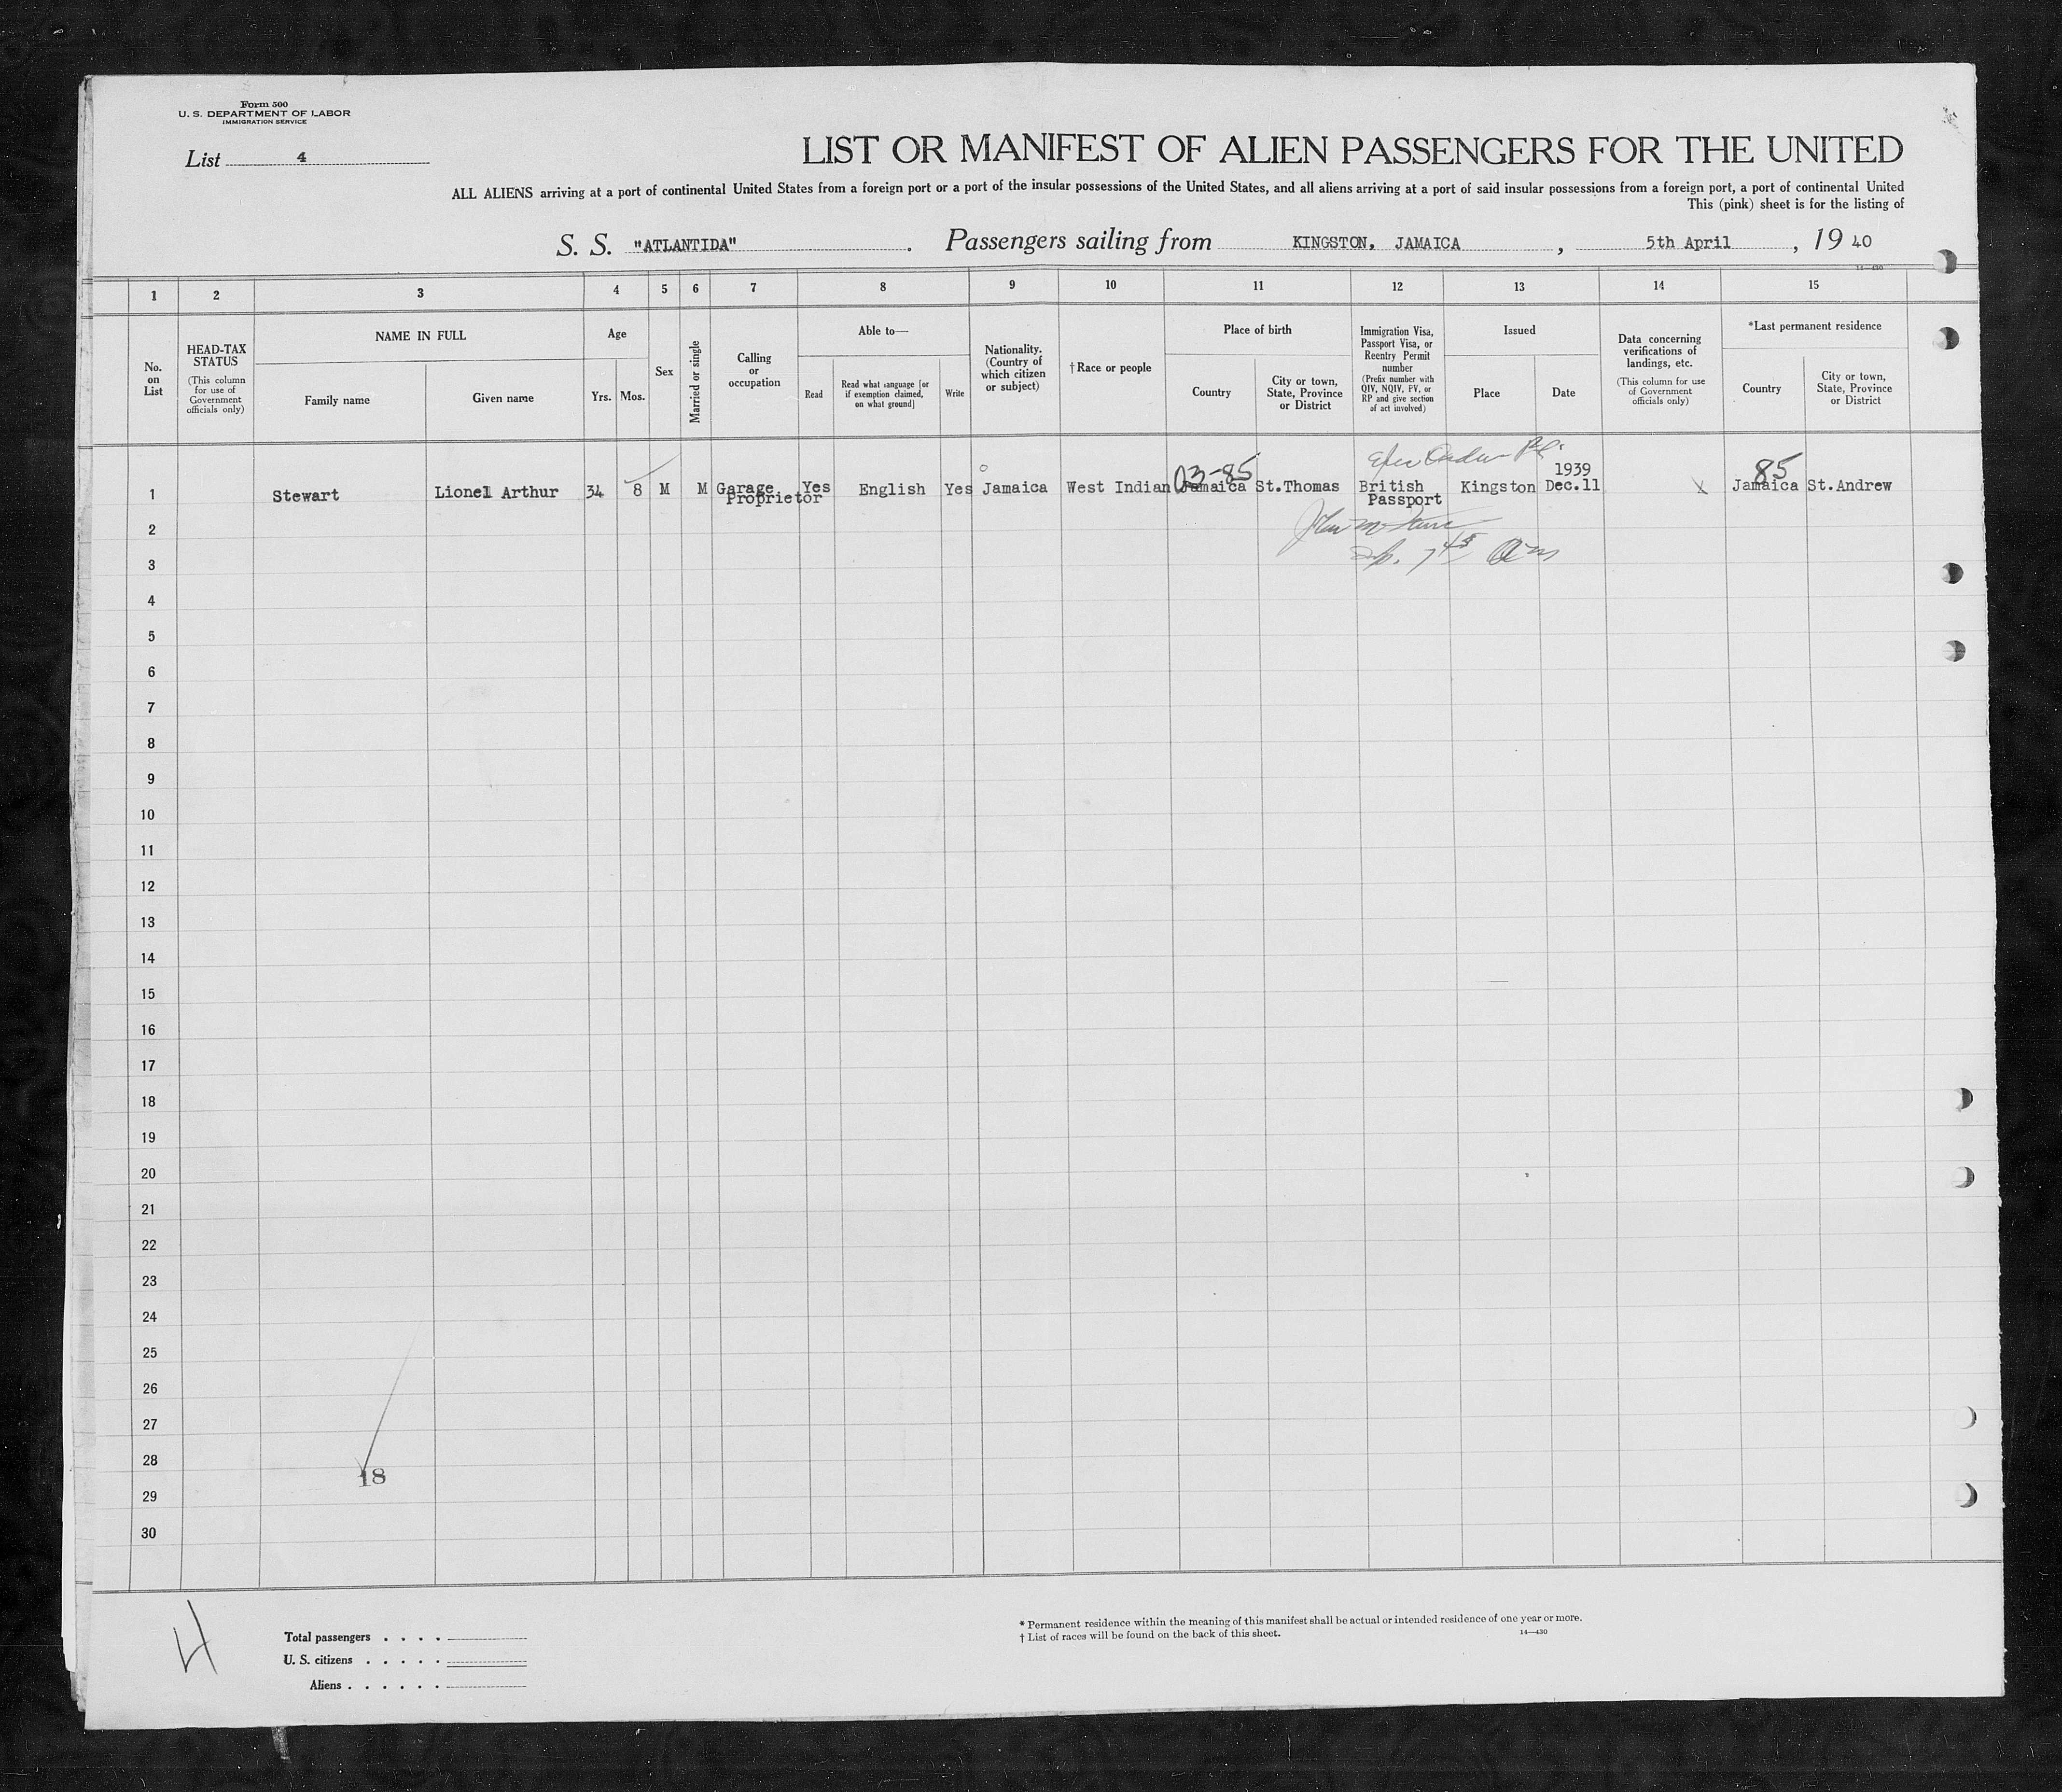 Form 500
U. S. DEPARTMENT OF LABOR
IMMIGRATION SERVICE
List 4
LIST OR MANIFEST OF ALIEN PASSENGERS FOR THE UNITED
ALL ALIENS arriving at a port of continental United States from a foreign port or a port of the insular possessions of the United States, and all aliens arriving at a port of said insular possessions from a foreign port, a port of continental United
This (pink) sheet is for the listing of
S. S. "ATLANTIDA" . Passengers sailing from KINGSTON, JAMAICA , 5th April , 19 40
14—430
1 2 3 4 5 6 7 8 9 10 11 12 13 14 15
No. on List
HEAD-TAX STATUS
(This column for use of Government officials only)
NAME IN FULL
Family name
Given name
Age
Yrs.
Mos.
Sex
Married or single
Calling or occupation
Able to—
Read
Read what language [or if exemption claimed, on what ground]
Write
Nationality. (Country of which citizen or subject)
†Race or people
Place of birth
Country
City or town, State, Province or District
Immigration Visa, Passport Visa, or Reentry Permit number
(Prefix number with QIV, NQIV, PV, or RP and give section of act involved)
Issued
Place
Date
Data concerning verifications of landings, etc.
(This column for use of Government officials only)
*Last permanent residence
Country
City or town, State, Province or District
03-85
1939
85
1 Stewart Lionel Arthur 34 8 M M Garage Yes English Yes Jamaica West Indian Jamaica St.Thomas British Kingston Dec.11 Jamaica St.Andrew
Proprietor Passport
2
3
4
5
6
7
8
9
10
11
12
13
14
15
16
17
18
19
20
21
22
23
24
25
26
27
28
18
29
30
4
Total passengers . . . .
U. S. citizens . . . . .
Aliens . . . . . .
* Permanent residence within the meaning of this manifest shall be actual or intended residence of one year or more.
† List of races will be found on the back of this sheet.
14—430